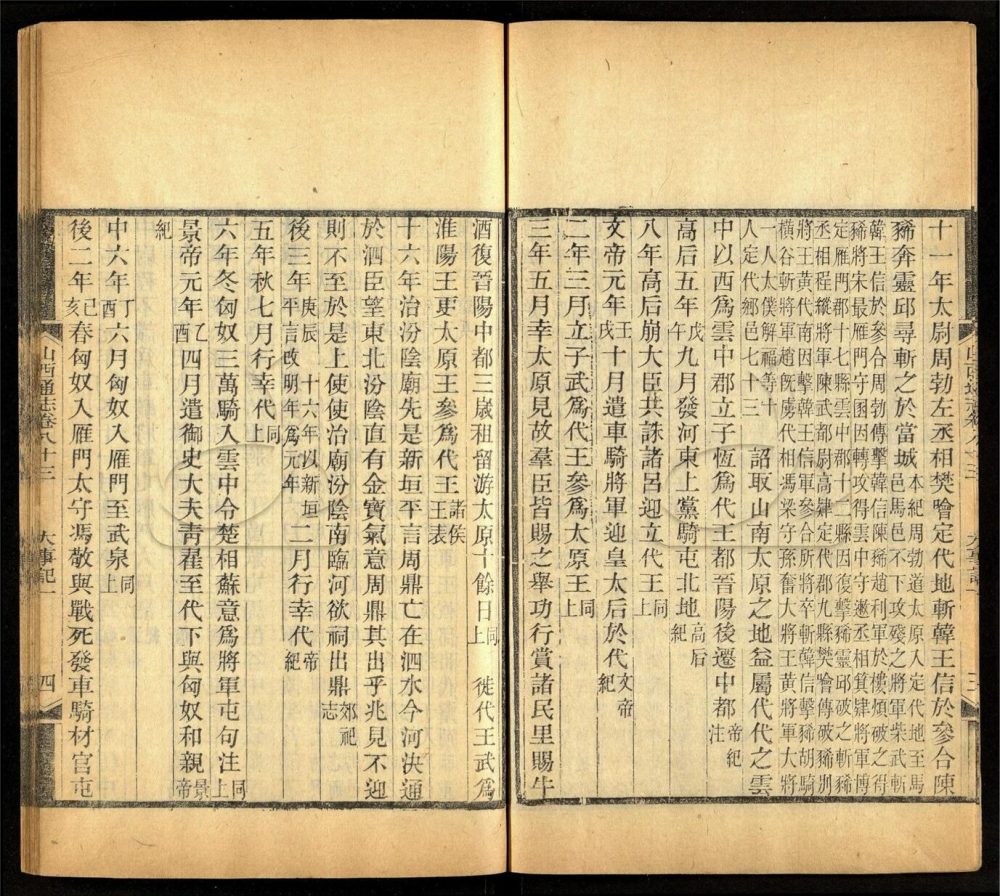 十一年太尉周勃左丞相樊噲定代地斬韓王信於參合陳
豨奔靈邱尋斬之於當城本紀周勃道太原入定代地至馬邑馬邑不下攻殘之將軍柴武斬
韓王信於參合周勃傳擊韓信陳豨趙利軍於樓煩破之得
豨將宋最雁門守圂因轉攻得雲中守遫丞相箕肄將軍博
定雁門郡十七縣雲中郡十二縣因復擊豨靈邱破之斬豨
丞相程縱將軍陳武都尉高肄定代郡九縣樊噲傳破豨別
將王黃代南因擊韓王信軍參合所將卒斬韓信擊豨胡騎
橫谷斬將軍趙旣虜代相馮梁守孫奮大將王黃將軍大將
一人太僕解福等十人定代鄉邑七十三 詔取山南太原之地益屬代代之雲
中以西爲雲中郡立子恆爲代王都晉陽後遷中都帝紀注
高后五年戊午九月發河東上黨騎屯北地高后紀
八年高后崩大臣共誅諸呂迎立代王同上
文帝元年壬戌十月遣車騎將軍迎皇太后於代文帝紀
二年三月立子武爲代王參爲太原王同上
三年五月幸太原見故羣臣皆賜之舉功行賞諸民里賜牛
酒復晉陽中都三歲租留游太原十餘日同上 徙代王武爲
淮陽王更太原王參爲代王諸侯王表
十六年治汾陰廟先是新垣平言周鼎亡在泗水今河決通
於泗臣望東北汾陰直有金寶氣意周鼎其出乎兆見不迎
則不至於是上使使治廟汾陰南臨河欲祠出鼎郊祀志
後三年庚辰 十六年以新垣平言改明年爲元年二月行幸代帝紀
五年秋七月行幸代同上
六年冬匈奴三萬騎入雲中令楚相蘇意爲將軍屯句注同上
景帝元年乙酉四月遣御史大夫靑翟至代下與匈奴和親景帝紀
中六年丁酉六月匈奴入雁門至武泉同上
後二年己亥春匈奴入雁門太守馮敬與戰死發車騎材官屯
山西通志卷八十三 大事記一 四